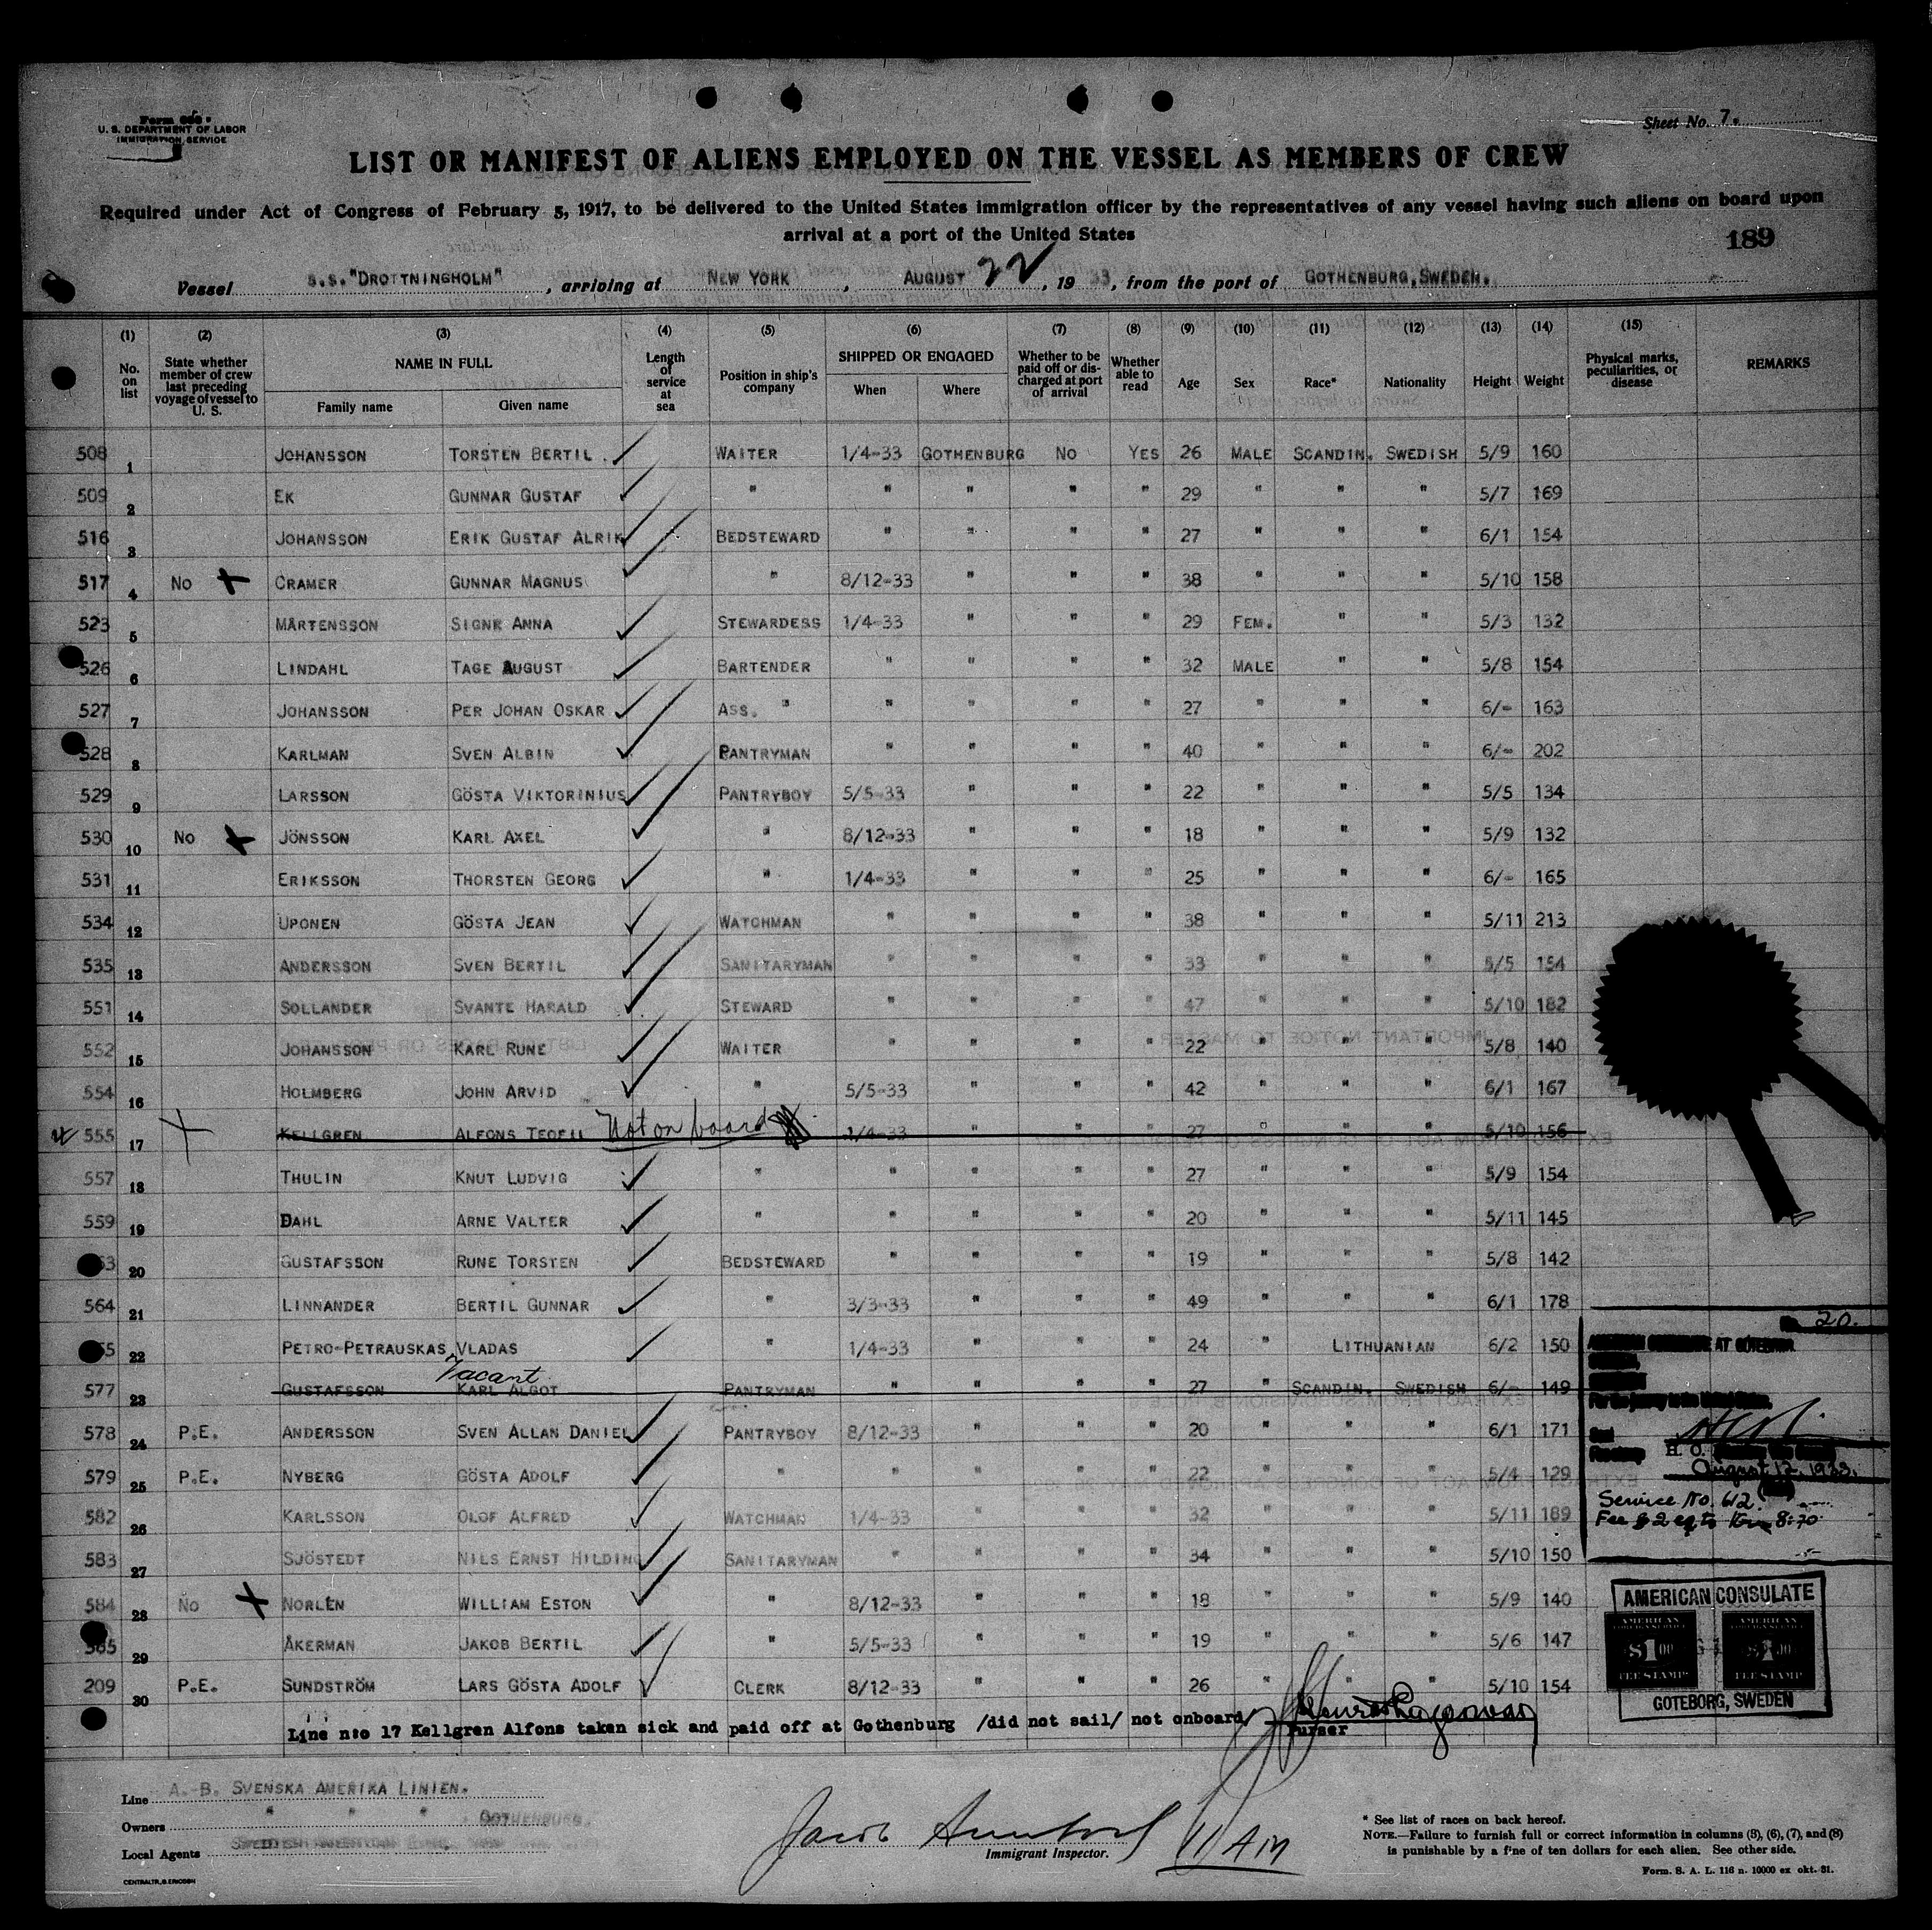 Form 680
U. S. DEPARTMENT OF LABOR
IMMIGRATION SERVICE
Sheet No. 7.
LIST OR MANIFEST OF ALIENS EMPLOYED ON THE VESSEL AS MEMBERS OF CREW
Required under Act of Congress of February 5, 1917, to be delivered to the United States immigration officer by the representatives of any vessel having such aliens on board upon
arrival at a port of the United States
189
Vessel S.S."DROTTNINGHOLM", arriving at NEW YORK, AUGUST 22, 1933, from the port of GOTHENBURG, SWEDEN.
(1) No. on list (2) State whether member of crew last preceding voyage of vessel to U. S. (3) NAME IN FULL Family name Given name (4) Length of service at sea (5) Position in ship's company (6) SHIPPED OR ENGAGED When Where (7) Whether to be paid off or discharged at port of arrival (8) Whether able to read (9) Age (10) Sex (11) Race* (12) Nationality (13) Height (14) Weight (15) Physical marks, peculiarities, or disease REMARKS
508 1 JOHANSSON TORSTEN BERTIL WAITER 1/4-33 GOTHENBURG NO YES 26 MALE SCANDIN. SWEDISH 5/9 160
509 2 EK GUNNAR GUSTAF " " " " " 29 " " " 5/7 169
516 3 JOHANSSON ERIK GUSTAF ALRIK BEDSTEWARD " " " " 27 " " " 6/1 154
517 4 NO CRAMER GUNNAR MAGNUS " 8/12-33 " " " 38 " " " 5/10 158
523 5 MÅRTENSSON SIGNE ANNA STEWARDESS 1/4-33 " " " 29 FEM. " " 5/3 132
526 6 LINDAHL TAGE AUGUST BARTENDER " " " " 32 MALE " " 5/8 154
527 7 JOHANSSON PER JOHAN OSKAR ASS. " " " " " 27 " " " 6/- 163
528 8 KARLMAN SVEN ALBIN PANTRYMAN " " " " 40 " " " 6/- 202
529 9 LARSSON GÖSTA VIKTORINIUS PANTRYBOY 5/5-33 " " " 22 " " " 5/5 134
530 10 NO JÖNSSON KARL AXEL " 8/12-33 " " " 18 " " " 5/9 132
531 11 ERIKSSON THORSTEN GEORG " 1/4-33 " " " 25 " " " 6/- 165
534 12 UPONEN GÖSTA JEAN WATCHMAN " " " " 38 " " " 5/11 213
535 13 ANDERSSON SVEN BERTIL SANITARYMAN " " " " 33 " " " 5/5 154
551 14 SOLLANDER SVANTE HARALD STEWARD " " " " 47 " " " 5/10 182
552 15 JOHANSSON KARL RUNE WAITER " " " " 22 " " " 5/8 140
554 16 HOLMBERG JOHN ARVID " 5/5-33 " " " 42 " " " 6/1 167
555 17 KELLGREN ALFONS TEOFIL Not on board 1/4-33 " " " 27 " " " 5/10 156
557 18 THULIN KNUT LUDVIG " " " " " 27 " " " 5/9 154
559 19 DAHL ARNE VALTER " " " " " 20 " " " 5/11 145
20 GUSTAFSSON RUNE TORSTEN BEDSTEWARD " " " " 19 " " " 5/8 142
564 21 LINNANDER BERTIL GUNNAR " 3/3-33 " " " 49 " " " 6/1 178
22 PETRO-PETRAUSKAS VLADAS " 1/4-33 " " " 24 " LITHUANIAN 6/2 150
Vacant
577 23 GUSTAFSSON KARL ALGOT PANTRYMAN " " " " 27 " SCANDIN. SWEDISH 6/- 149
578 24 P.E. ANDERSSON SVEN ALLAN DANIEL PANTRYBOY 8/12-33 " " " 20 " " " 6/1 171
579 25 P.E. NYBERG GÖSTA ADOLF " " " " " 22 " " " 5/4 129
582 26 KARLSSON OLOF ALFRED WATCHMAN 1/4-33 " " " 32 " " " 5/11 189
583 27 SJÖSTEDT NILS ERNST HILDING SANITARYMAN " " " " 34 " " " 5/10 150
584 28 NO NORLÉN WILLIAM ESTON " 8/12-33 " " " 18 " " " 5/9 140
29 ÅKERMAN JAKOB BERTIL " 5/5-33 " " " 19 " " " 5/6 147
209 30 P.E. SUNDSTRÖM LARS GÖSTA ADOLF CLERK 8/12-33 " " " 26 " " " 5/10 154
Line n:o 17 Kellgren Alfons taken sick and paid off at Gothenburg /did not sail/ not onboard/
Purser
20.
AMERICAN CONSULATE AT GÖTEBORG
For the journey to the United States.
Seal
H. O.
August 12, 1933.
Service No. 612.
Fee $2 eq to Kr. 8:70
AMERICAN CONSULATE
AMERICAN FOREIGN SERVICE $1.00 FEE STAMP
GOTEBORG, SWEDEN
Line A.-B. SVENSKA AMERIKA LINIEN.
Owners " " " GOTHENBURG.
Local Agents
CENTRALTR. G. ERICSSON
Jacob
Immigrant Inspector.
11 AM
* See list of races on back hereof.
NOTE.—Failure to furnish full or correct information in columns (5), (6), (7), and (8)
is punishable by a fine of ten dollars for each alien. See other side.
Form. S. A. L. 116 n. 10000 ex okt. 31.